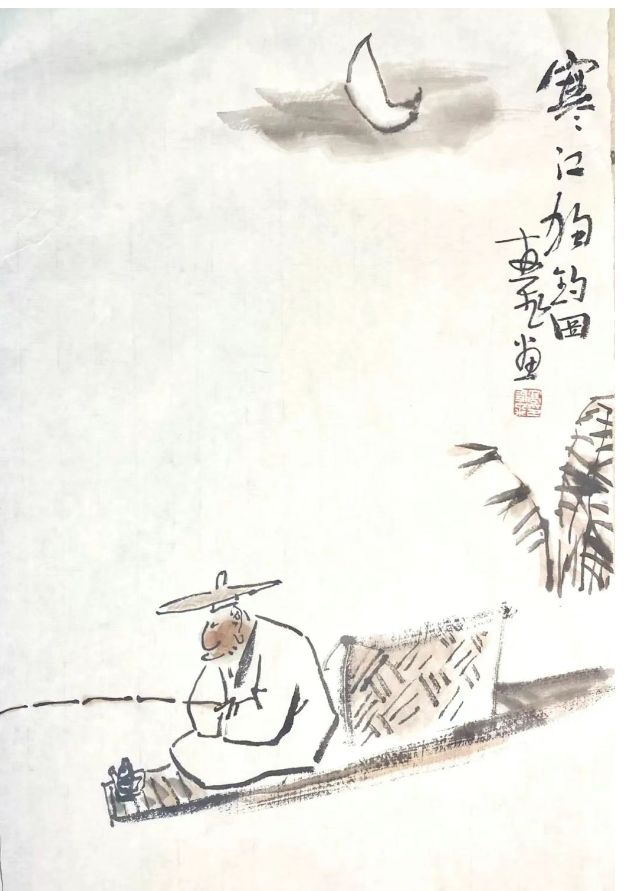 寒江独钓图
画